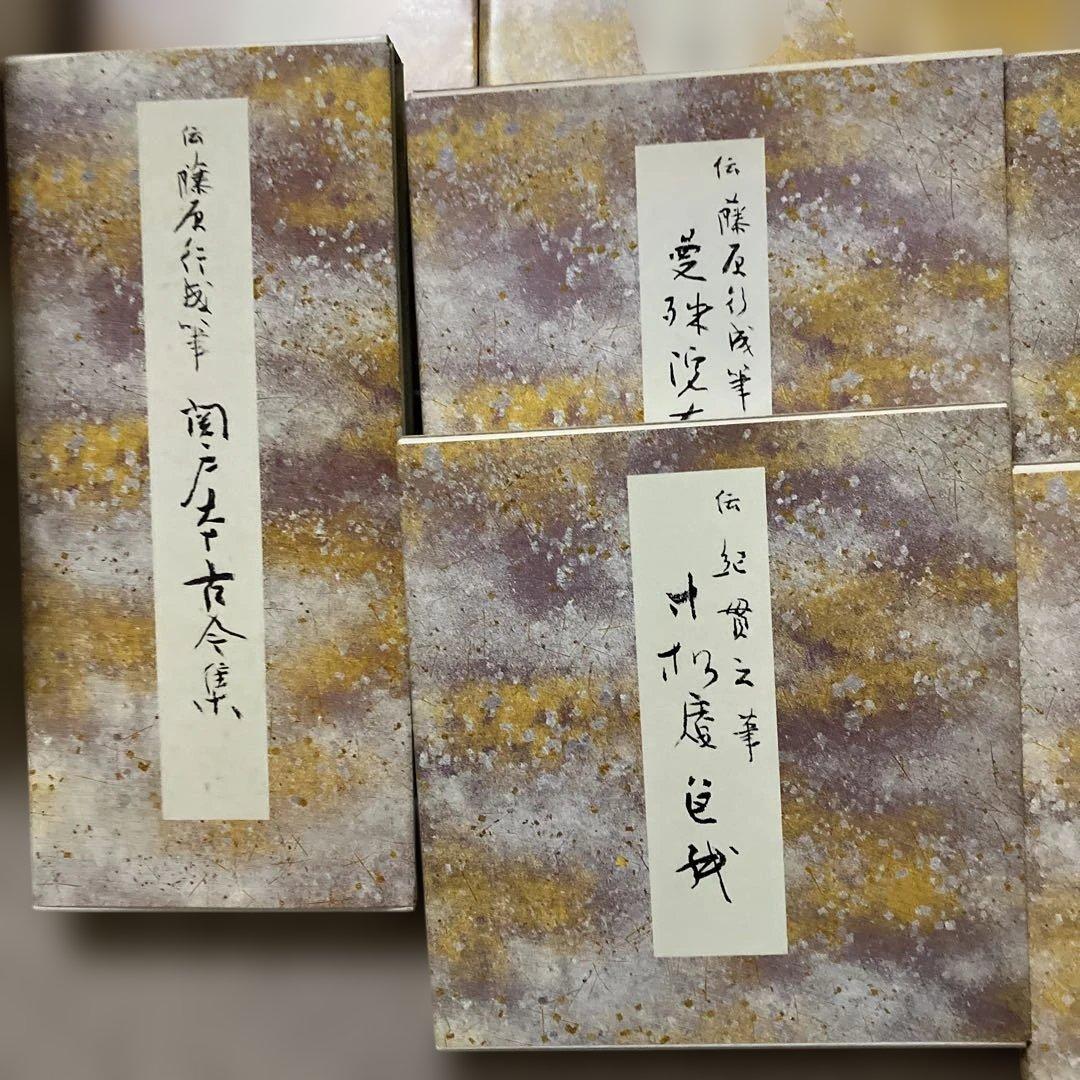 伝藤原行成筆 関戸本古今集
伝 藤原行成筆
曼殊院本
伝 紀貫之筆
寸松庵色紙